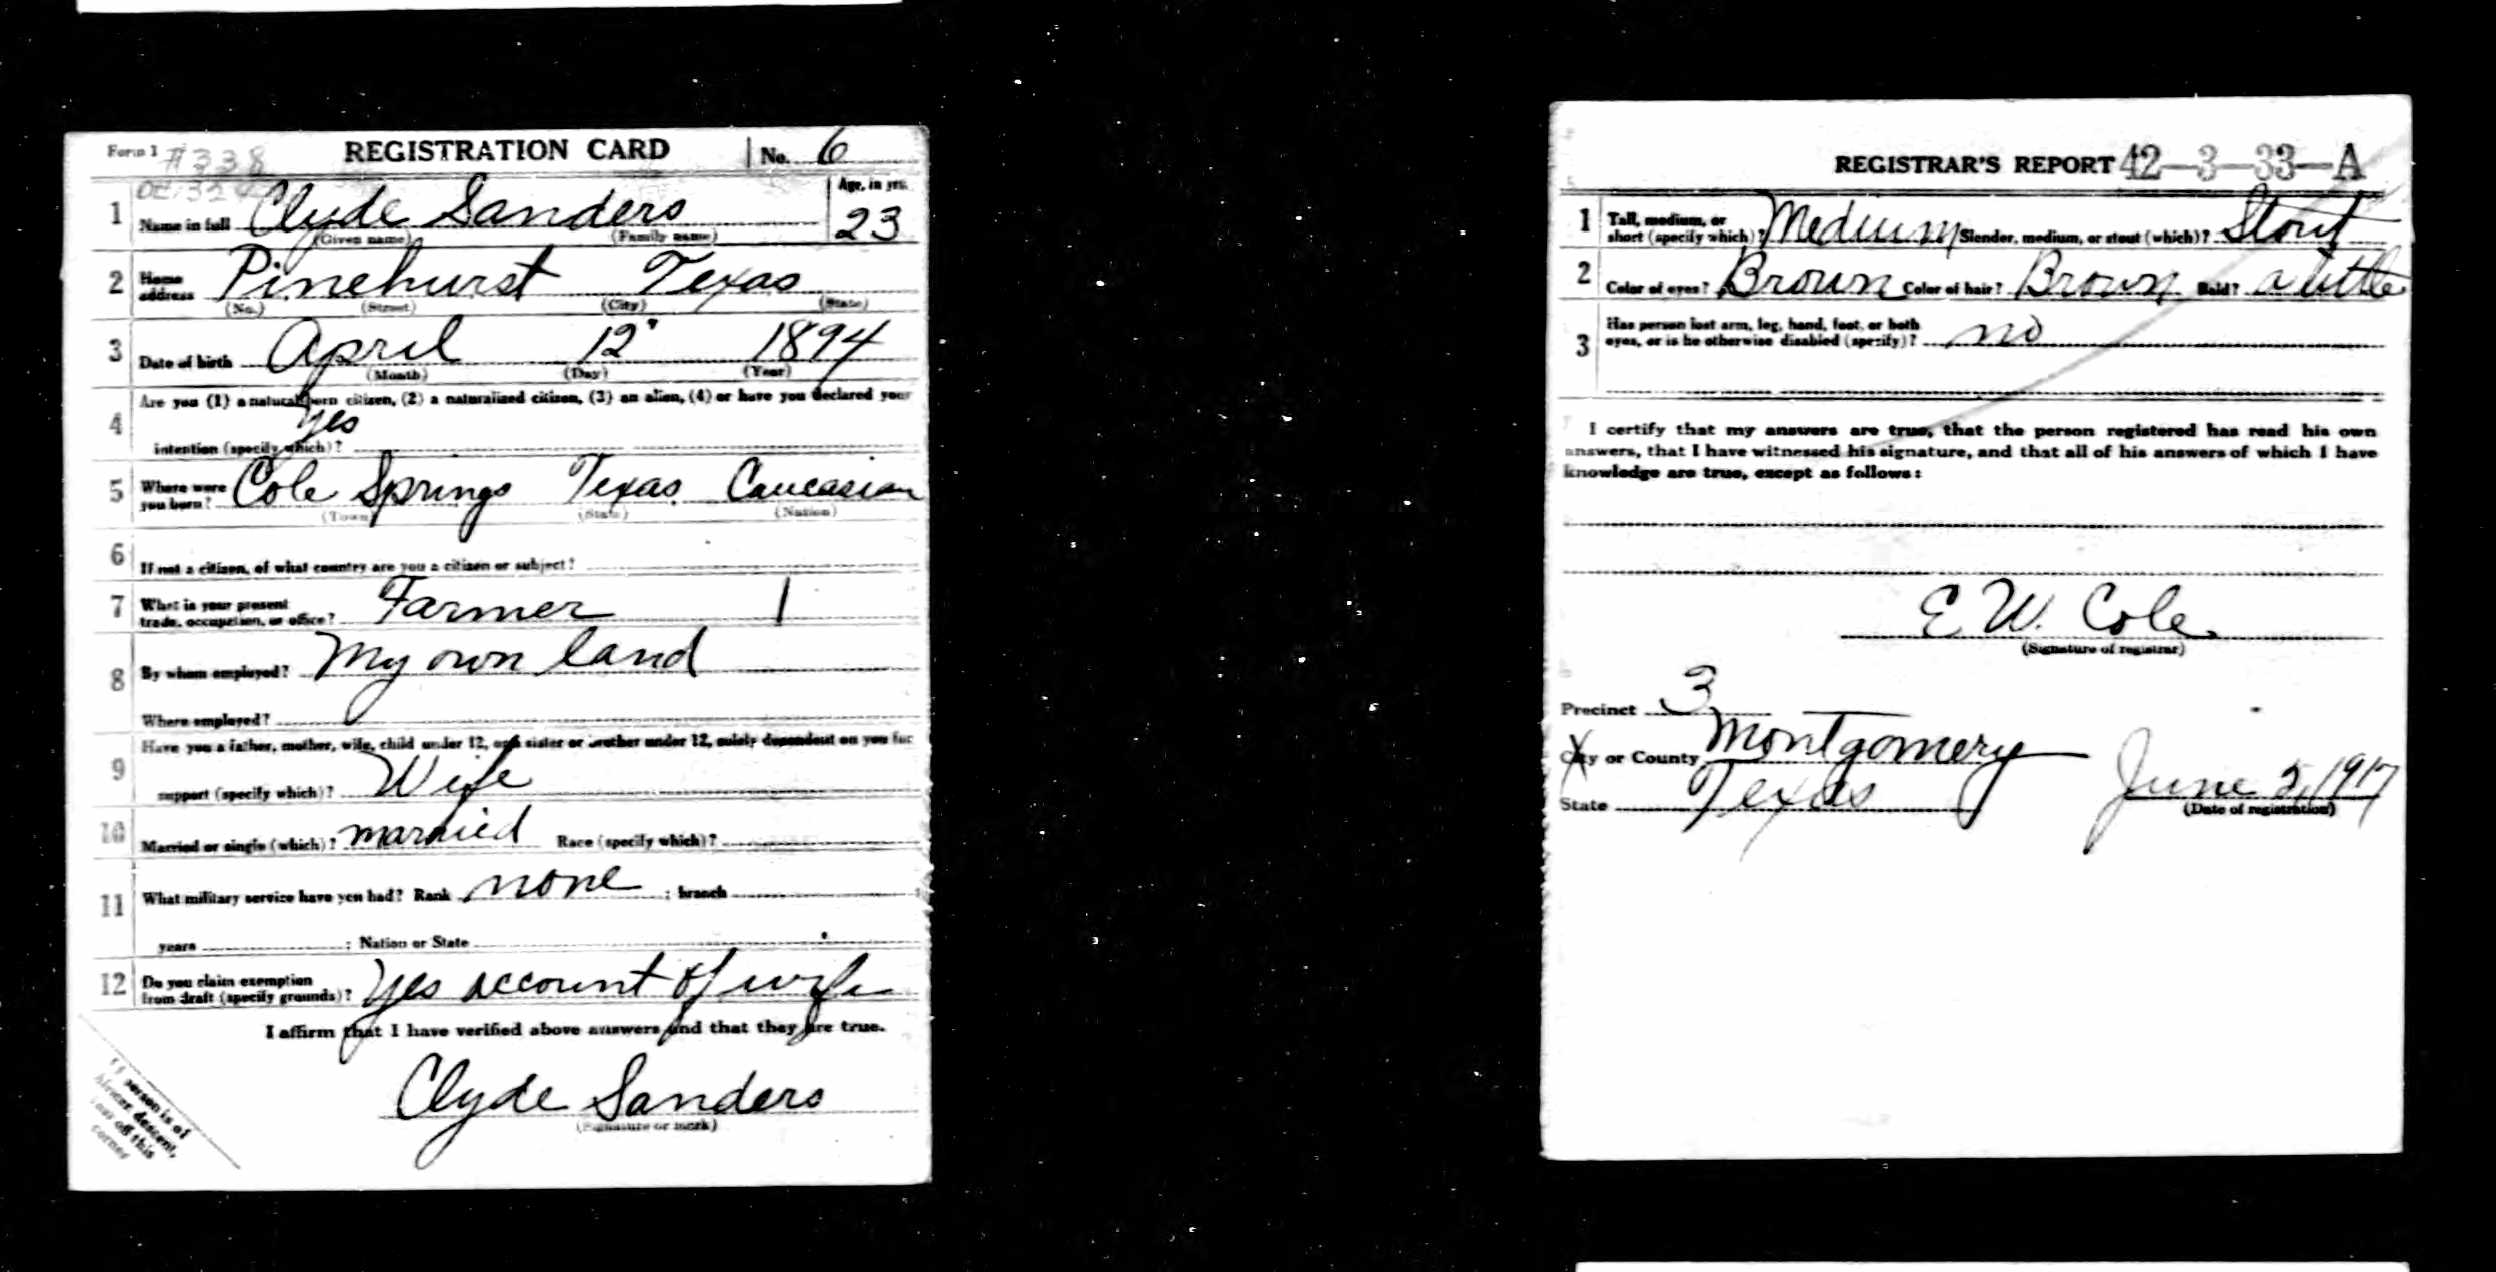 Form 1 #338 REGISTRATION CARD No. 6
1 Name in full Clyde Sanders Age, in yrs. 23
(Given name) (Family name)
2 Home address Pinehurst Texas
(No.) (Street) (City) (State)
3 Date of birth April 12 1894
(Month) (Day) (Year)
4 Are you (1) a natural born citizen, (2) a naturalized citizen, (3) an alien, (4) or have you declared your
intention (specify which)? Yes
5 Where were you born? Cole Springs Texas Caucasian
(Town) (State) (Nation)
6 If not a citizen, of what country are you a citizen or subject?
7 What is your present trade, occupation, or office? Farmer 1
8 By whom employed? My own land
Where employed?
9 Have you a father, mother, wife, child under 12, or a sister or brother under 12, solely dependent on you for
support (specify which)? Wife
10 Married or single (which)? married Race (specify which)?
11 What military service have you had? Rank none ; branch
years ; Nation or State
12 Do you claim exemption from draft (specify grounds)? Yes account of wife
I affirm that I have verified above answers and that they are true.
Clyde Sanders
(Signature or mark)
person is of
descent,
off this
corner
REGISTRAR'S REPORT 42-3-33-A
1 Tall, medium, or short (specify which)? Medium Slender, medium, or stout (which)? Stout
2 Color of eyes? Brown Color of hair? Brown Bald? a little
3 Has person lost arm, leg, hand, foot, or both
eyes, or is he otherwise disabled (specify)? no
I certify that my answers are true, that the person registered has read his own
answers, that I have witnessed his signature, and that all of his answers of which I have
knowledge are true, except as follows:
E W. Cole
(Signature of registrar)
Precinct 3
City or County Montgomery
State Texas June 2, 1917
(Date of registration)